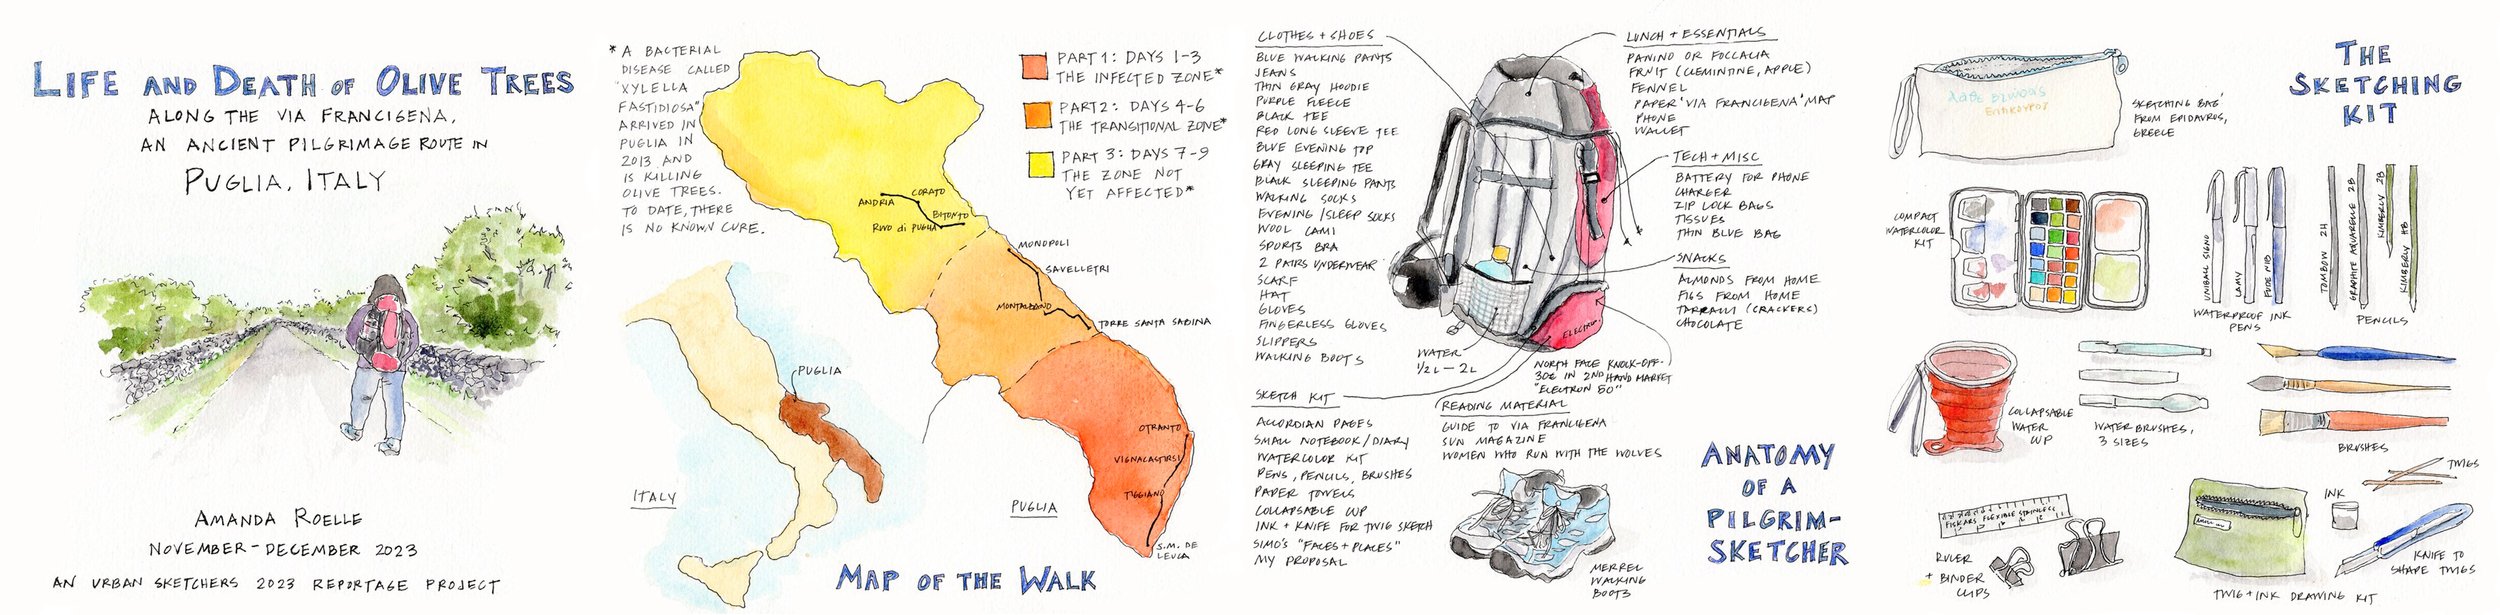 LIFE AND DEATH OF OLIVE TREES
ALONG THE VIA FRANCIGENA,
AN ANCIENT PILGRIMAGE ROUTE IN
PUGLIA, ITALY
AMANDA ROELLE
NOVEMBER-DECEMBER 2023
AN URBAN SKETCHERS 2023 REPORTAGE PROJECT
* A BACTERIAL
DISEASE CALLED
"XYLELLA
FASTIDIOSA"
ARRIVED IN
PUGLIA IN
2013 AND
IS KILLING
OLIVE TREES.
TO DATE, THERE
IS NO KNOWN CURE.
PART 1: DAYS 1-3
THE INFECTED ZONE*
PART 2: DAYS 4-6
THE TRANSITIONAL ZONE*
PART 3: DAYS 7-9
THE ZONE NOT
YET AFFECTED*
CORATO
ANDRIA
BITONTO
RUVO di PUGLIA
MONOPOLI
SAVELLETRI
MONTALBANO
TORRE SANTA SABINA
OTRANTO
VIGNACASTRISI
TIGGIANO
S.M. DE
LEUCA
PUGLIA
ITALY
PUGLIA
MAP OF THE WALK
CLOTHES + SHOES
BLUE WALKING PANTS
JEANS
THIN GRAY HOODIE
PURPLE FLEECE
BLACK TEE
RED LONG SLEEVE TEE
BLUE EVENING TOP
GRAY SLEEPING TEE
BLACK SLEEPING PANTS
WALKING SOCKS
EVENING/SLEEP SOCKS
WOOL CAMI
SPORTS BRA
2 PAIRS UNDERWEAR
SCARF
HAT
GLOVES
FINGERLESS GLOVES
SLIPPERS
WALKING BOOTS
SKETCH KIT
ACCORDIAN PAGES
SMALL NOTEBOOK/DIARY
WATERCOLOR KIT
PENS, PENCILS, BRUSHES
PAPER TOWELS
COLLAPSABLE CUP
INK + KNIFE FOR TWIG SKETCH
SIMO'S "FACES + PLACES"
MY PROPOSAL
LUNCH + ESSENTIALS
PANINO OR FOCCACIA
FRUIT (CLEMINTINE, APPLE)
FENNEL
PAPER 'VIA FRANCIGENA' MAP
PHONE
WALLET
TECH + MISC
BATTERY FOR PHONE
CHARGER
ZIP LOCK BAGS
TISSUES
THIN BLUE BAG
SNACKS
ALMONDS FROM HOME
FIGS FROM HOME
TARRALLI (CRACKERS)
CHOCOLATE
ELECTRON
WATER
1/2 L - 2L
NORTH FACE KNOCK-OFF-
30€ IN 2ND HAND MARKET
"ELECTRON 50"
READING MATERIAL
GUIDE TO VIA FRANCIGENA
SUN MAGAZINE
WOMEN WHO RUN WITH THE WOLVES
MERREL
WALKING
BOOTS
ANATOMY
OF A
PILGRIM-
SKETCHER
THE
SKETCHING
KIT
SKETCHING BAG
FROM EPIDAVROS,
GREECE
COMPACT
WATERCOLOR
KIT
UNIBALL SIGNO
LAMY
FUDE NIB
WATERPROOF INK
PENS
TOMBOW 2H
GRAPHITE AQUARELLE 2B
KIMBERLY 2B
KIMBERLY HB
PENCILS
COLLAPSABLE
WATER
CUP
WATER BRUSHES,
3 SIZES
BRUSHES
TWIGS
INK
FISKARS FLEXIBLE STAINLESS
RULER
+ BINDER
CLIPS
TWIG + INK DRAWING KIT
KNIFE TO
SHAPE TWIGS